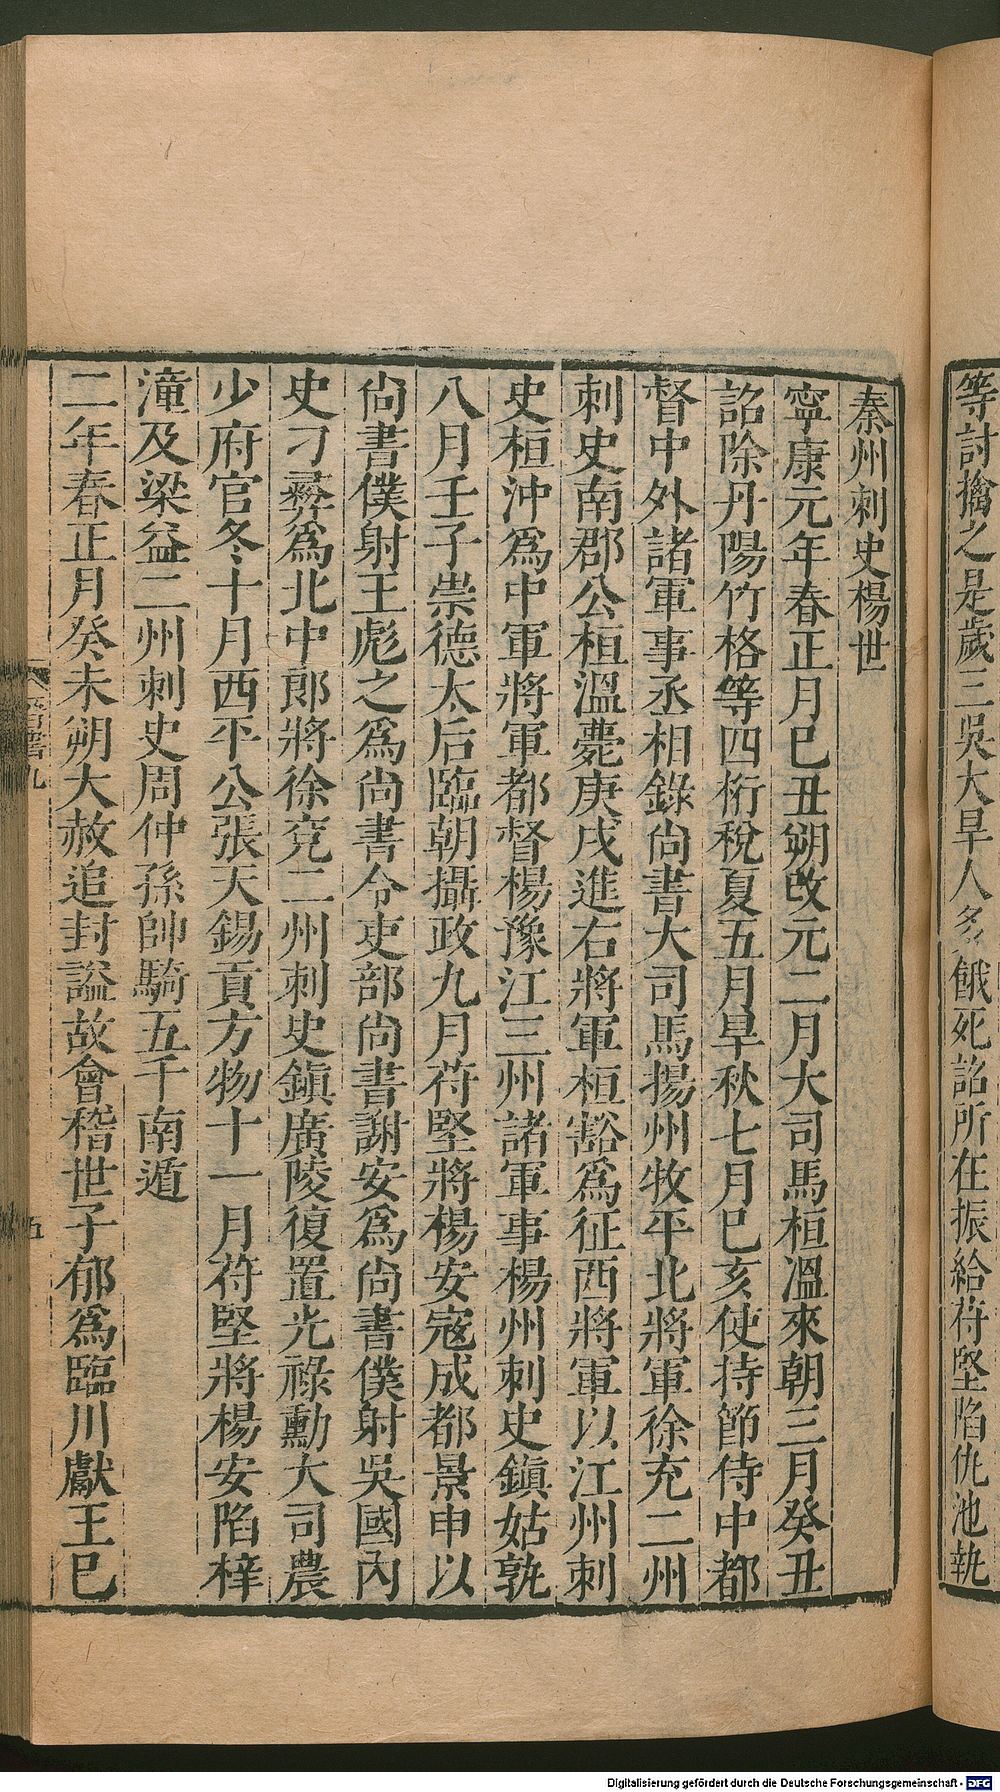 等討擒之是歲三吳大旱人多餓死詔所在振給苻堅陷仇池執
秦州刺史楊世
寧康元年春正月巳丑朔改元二月大司馬桓溫來朝三月癸丑
詔除丹陽竹格等四桁稅夏五月旱秋七月巳亥使持節侍中都
督中外諸軍事丞相錄尚書大司馬揚州牧平北將軍徐兗二州
刺史南郡公桓溫薨庚戌進右將軍桓豁爲征西將軍以江州刺
史桓沖爲中軍將軍都督楊豫江三州諸軍事楊州刺史鎭姑孰
八月壬子崇德太后臨朝攝政九月苻堅將楊安寇成都景申以
尚書僕射王彪之爲尚書令吏部尚書謝安爲尚書僕射吳國內
史刁彞爲北中郎將徐兗二州刺史鎭廣陵復置光祿勳大司農
少府官冬十月西平公張天錫貢方物十一月苻堅將楊安陷梓
潼及梁益二州刺史周仲孫帥騎五千南遁
二年春正月癸未朔大赦追封謚故會稽世子郁爲臨川獻王巳
晉書九
五
Digitalisierung gefördert durch die Deutsche Forschungsgemeinschaft - DFG